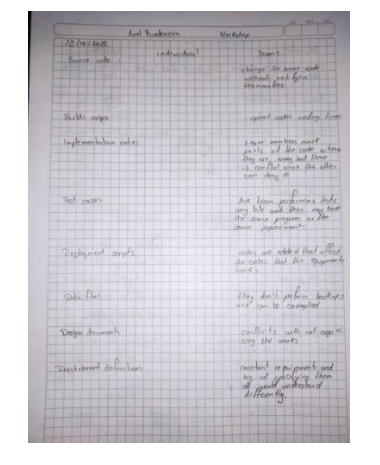 Workshop
individual Teams
Source code change the source code
without notifyin
teammates
Builds scripts
Implementation notes team members mark
parts of the code as being
they are wrong but there
is conflict since the other
can deny it
Test cases the team performens tests
very late and they may have
the same program or the
same requirement
Deployment scripts codes are added that affect
the codes that the equipments
works
Data files they don't perform backups
and can be corrupted
Design documents conflicts with not
the works
Requirement definitions constant requirements and
not specifying them
all would understand
differently.